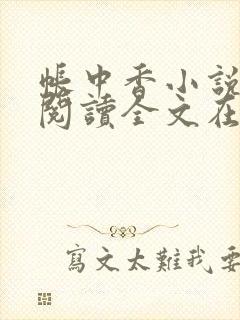 帳中香小說
閱讀全文在
寫文太難我要